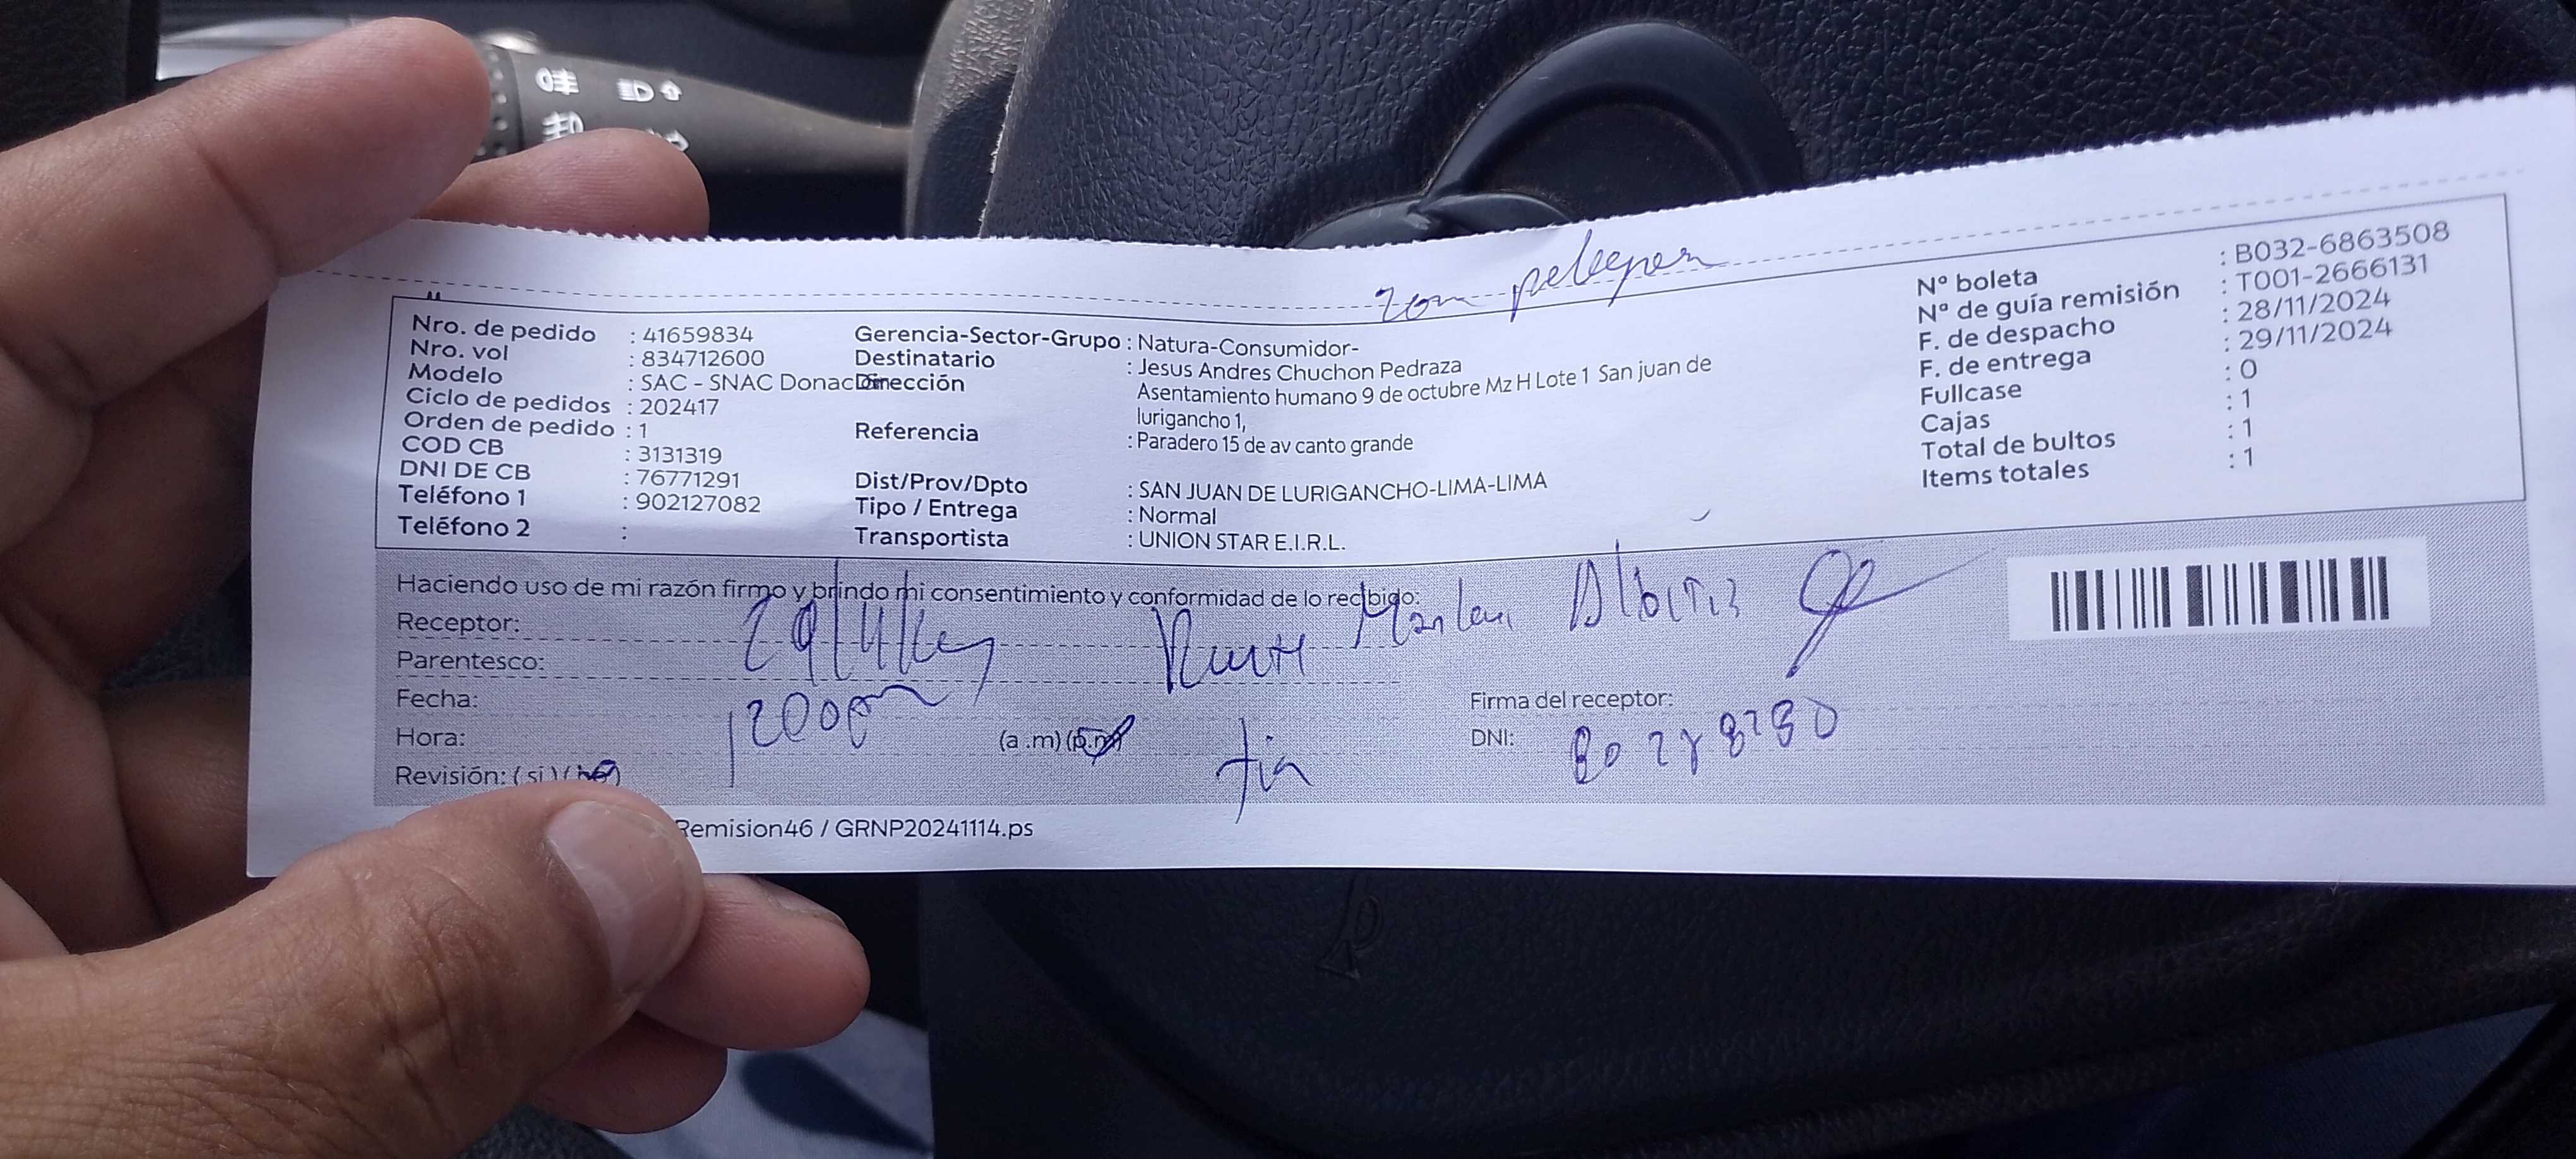 zona peligrosa
Nro. de pedido : 41659834
Nro. vol : 834712600
Modelo : SAC - SNAC Donac
Ciclo de pedidos : 202417
Orden de pedido : 1
COD CB : 3131319
DNI DE CB : 76771291
Teléfono 1 : 902127082
Teléfono 2 :
Gerencia-Sector-Grupo : Natura-Consumidor-
Destinatario : Jesus Andres Chuchon Pedraza
Dirección : Asentamiento humano 9 de octubre Mz H Lote 1 San juan de
lurigancho 1,
Referencia : Paradero 15 de av canto grande
Dist/Prov/Dpto : SAN JUAN DE LURIGANCHO-LIMA-LIMA
Tipo / Entrega : Normal
Transportista : UNION STAR E.I.R.L.
Nº boleta : B032-6863508
Nº de guía remisión : T001-2666131
F. de despacho : 28/11/2024
F. de entrega : 29/11/2024
Fullcase : 0
Cajas : 1
Total de bultos : 1
Items totales : 1
Haciendo uso de mi razón firmo y brindo mi consentimiento y conformidad de lo recibido:
Receptor: Marleni
Parentesco:
Fecha: 29/11/24
Hora: 1200pm (a.m) (p.m)
tia
Revisión: (si) (no)
Firma del receptor:
DNI:
Remision46 / GRNP20241114.ps